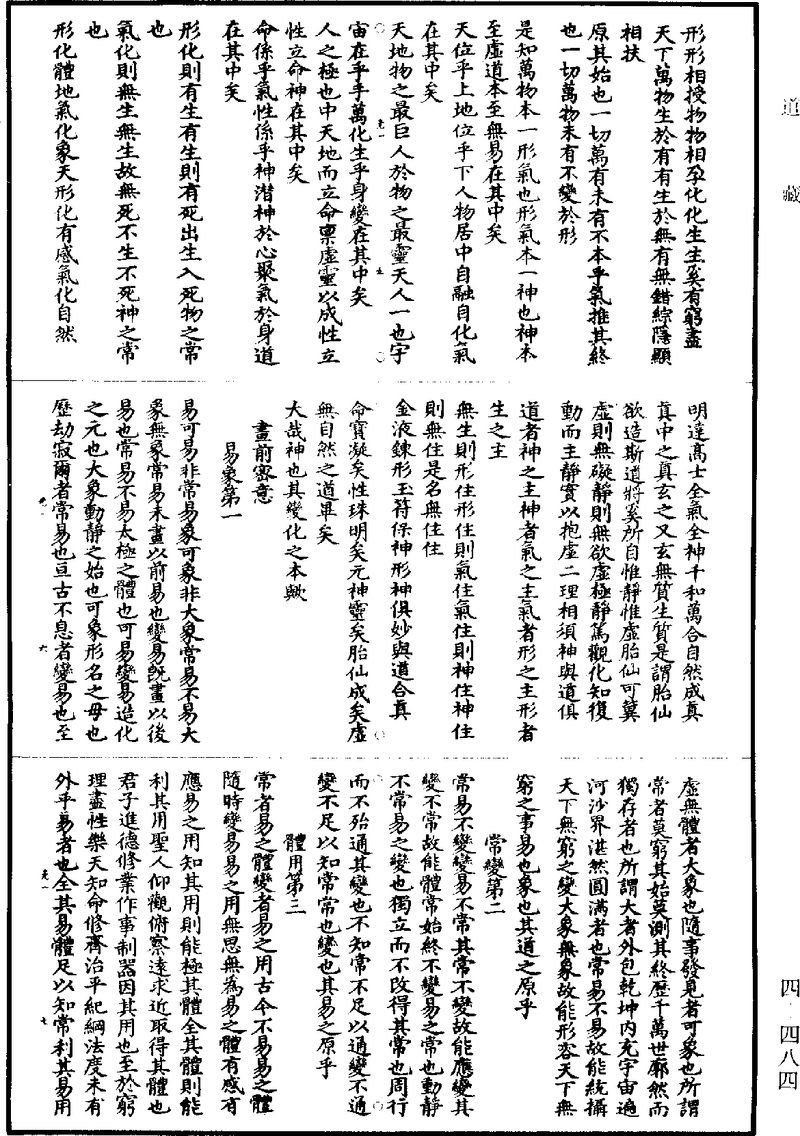 道藏
四·四八四
形形相授物物相孕化化生生奚有窮盡
天下萬物生於有有生於無有無錯綜隱顯
相扶
原其始也一切萬有未有不本乎氣推其終
也一切萬物未有不變於形
是知萬物本一形氣也形氣本一神也神本
至虛道本至無易在其中矣
天位乎上地位乎下人物居中自融自化氣
在其中矣
天地物之最巨人於物之最靈天人一也宇
宙在乎手萬化生乎身變在其中矣
人之極也中天地而立命稟虛靈以成性立
性立命神在其中矣
命係乎氣性係乎神潛神於心聚氣於身道
在其中矣
形化則有生有生則有死出生入死物之常
也
氣化則無生無生故無死不生不死神之常
也
形化體地氣化象天形化有感氣化自然
明達高士全氣全神千和萬合自然成真
真中之真玄之又玄無質生質是謂胎仙
欲造斯道將奚所自惟靜惟虛胎仙可冀
虛則無礙靜則無欲虛極靜篤觀化知復
動而主靜實以抱虛二理相須神與道俱
道者神之主神者氣之主氣者形之主形者
生之主
無生則形住形住則氣住氣住則神住神住
則無住是名無住住
金液鍊形玉符保神形神俱妙與道合真
命寶凝矣性珠明矣元神靈矣胎仙成矣虛
無自然之道畢矣
大哉神也其變化之本歟
畫前密意
易象第一
易可易非常易象可象非大象常易不易大
象無象常易未畫以前易也變易既畫以後
易也常易不易太極之體也可易變易造化
之元也大象動靜之始也可象形名之母也
歷劫寂爾者常易也亘古不息者變易也至
虛無體者大象也隨事發見者可象也所謂
常者莫窮其始莫測其終歷千萬世廓然而
獨存者也所謂大者外包乾坤內充宇宙遍
河沙界湛然圓滿者也常易不易故能統攝
天下無窮之變大象無象故能形容天下無
窮之事易也象也其道之原乎
常變第二
常易不變變易不常其常不變故能應變其
變不常故能體常始終不變易之常也動靜
不常易之變也獨立而不改得其常也周行
而不殆通其變也不知常不足以通變不通
變不足以知常常也變也其易之原乎
體用第三
常者易之體變者易之用古今不易易之體
隨時變易易之用無思無為易之體有感有
應易之用知其用則能極其體全其體則能
利其用聖人仰觀俯察遠求近取得其體也
君子進德修業作事制器因其用也至於窮
理盡性樂天知命修齊治平紀綱法度未有
外乎易者也全其易體足以知常利其易用